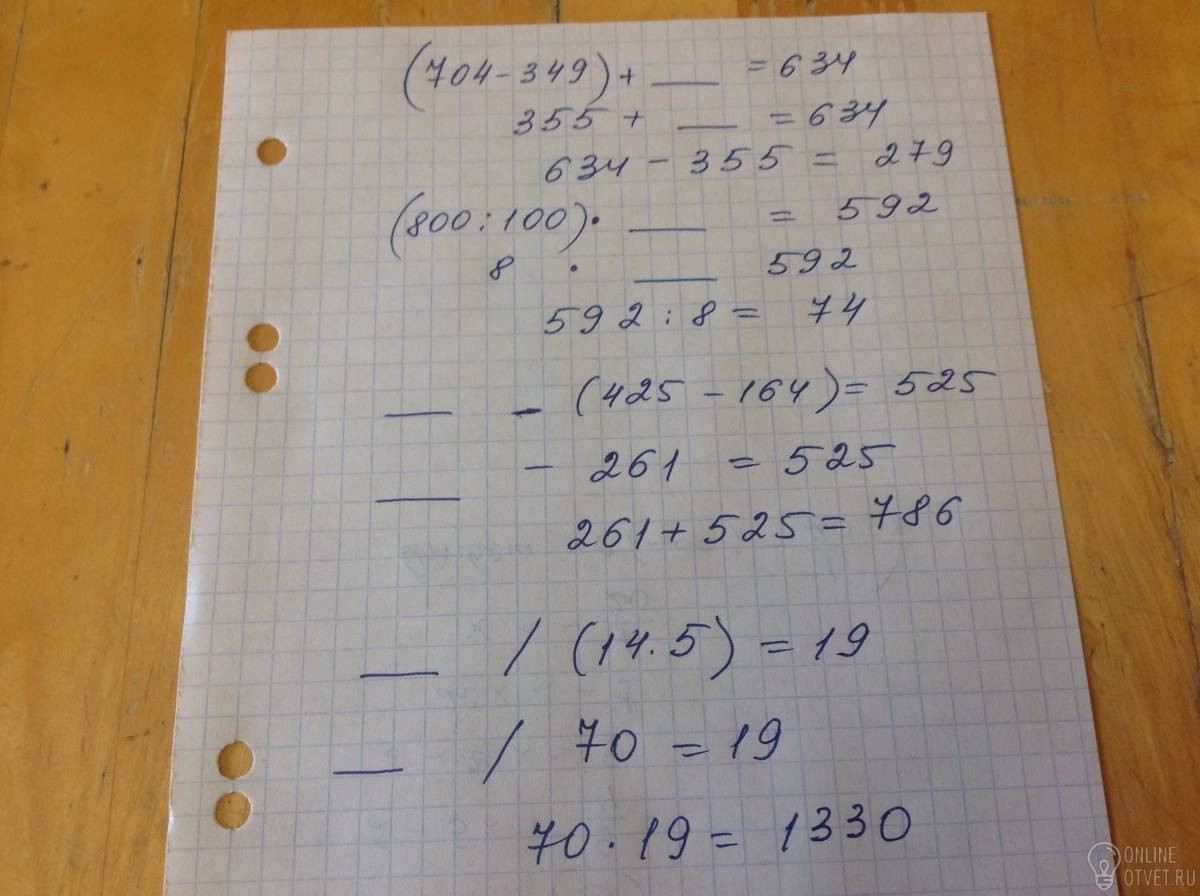 (704-349)+ ___ =634
355 + ___ =634
634 - 355 = 279
(800:100)· ___ = 592
8 · ___ 592
592 : 8 = 74
___ - (425 - 164)= 525
___ - 261 = 525
261+525=786
___ / (14·5) = 19
___ / 70 =19
70·19= 1330
ONLINE
OTVET.RU